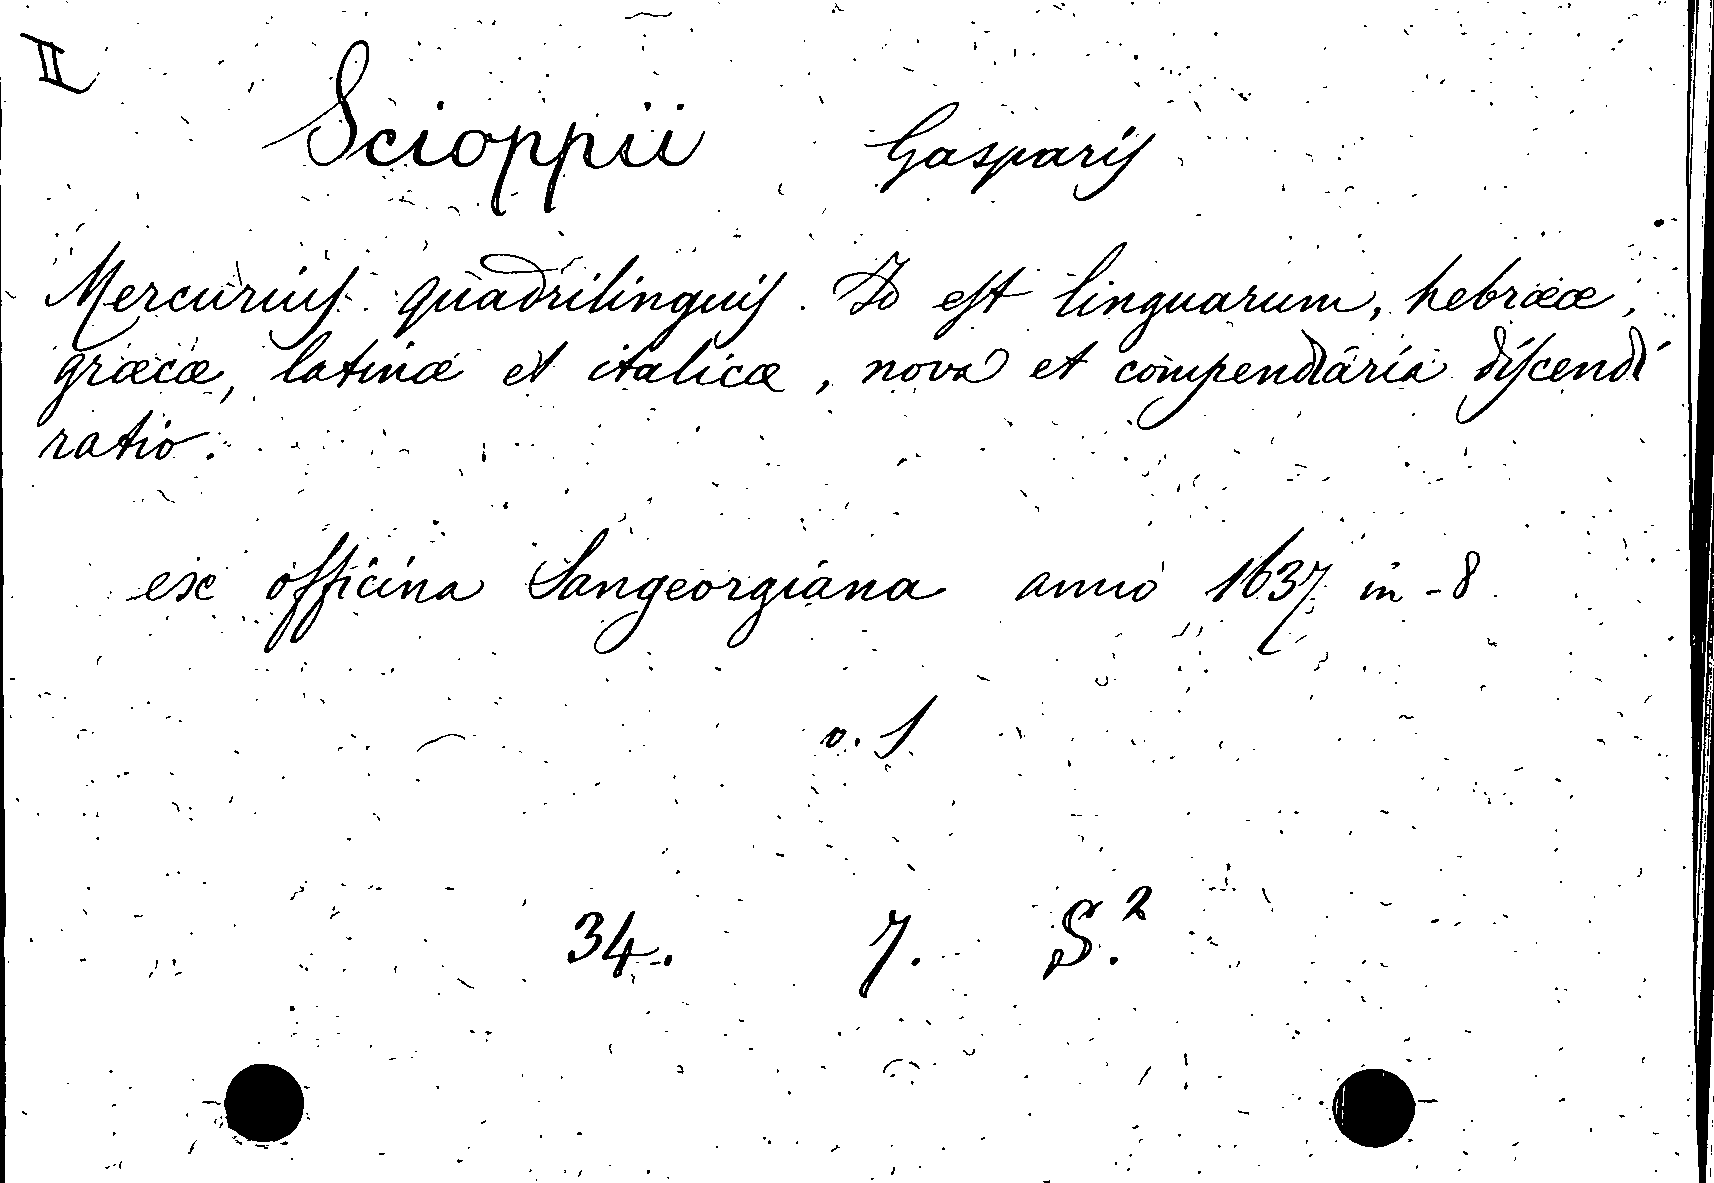 II
Scioppii Gasparis
Mercurius quadrilinguis. Id est linguarum, hebrææ,
græcæ, latinæ et italicæ, nova et compendiaria discendi
ratio.
ex officina Sangeorgiana anno 1637 in-8
v. S
34. 7. S.²